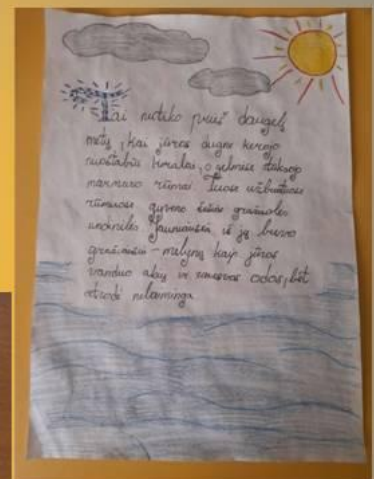 Tai nutiko prieš daugelį
metų, kai jūros dugne kerojo
nuostabūs koralai, o gelmėse stūksojo
marmuro rūmai. Tuose užburtuose
rūmuose gyveno šešios gražuolės
undinėlės. Jauniausia iš jų buvo
gražiausia - mėlynų kaip jūros
vanduo akių ir švelnios odos, bet
atrodė nelaiminga.